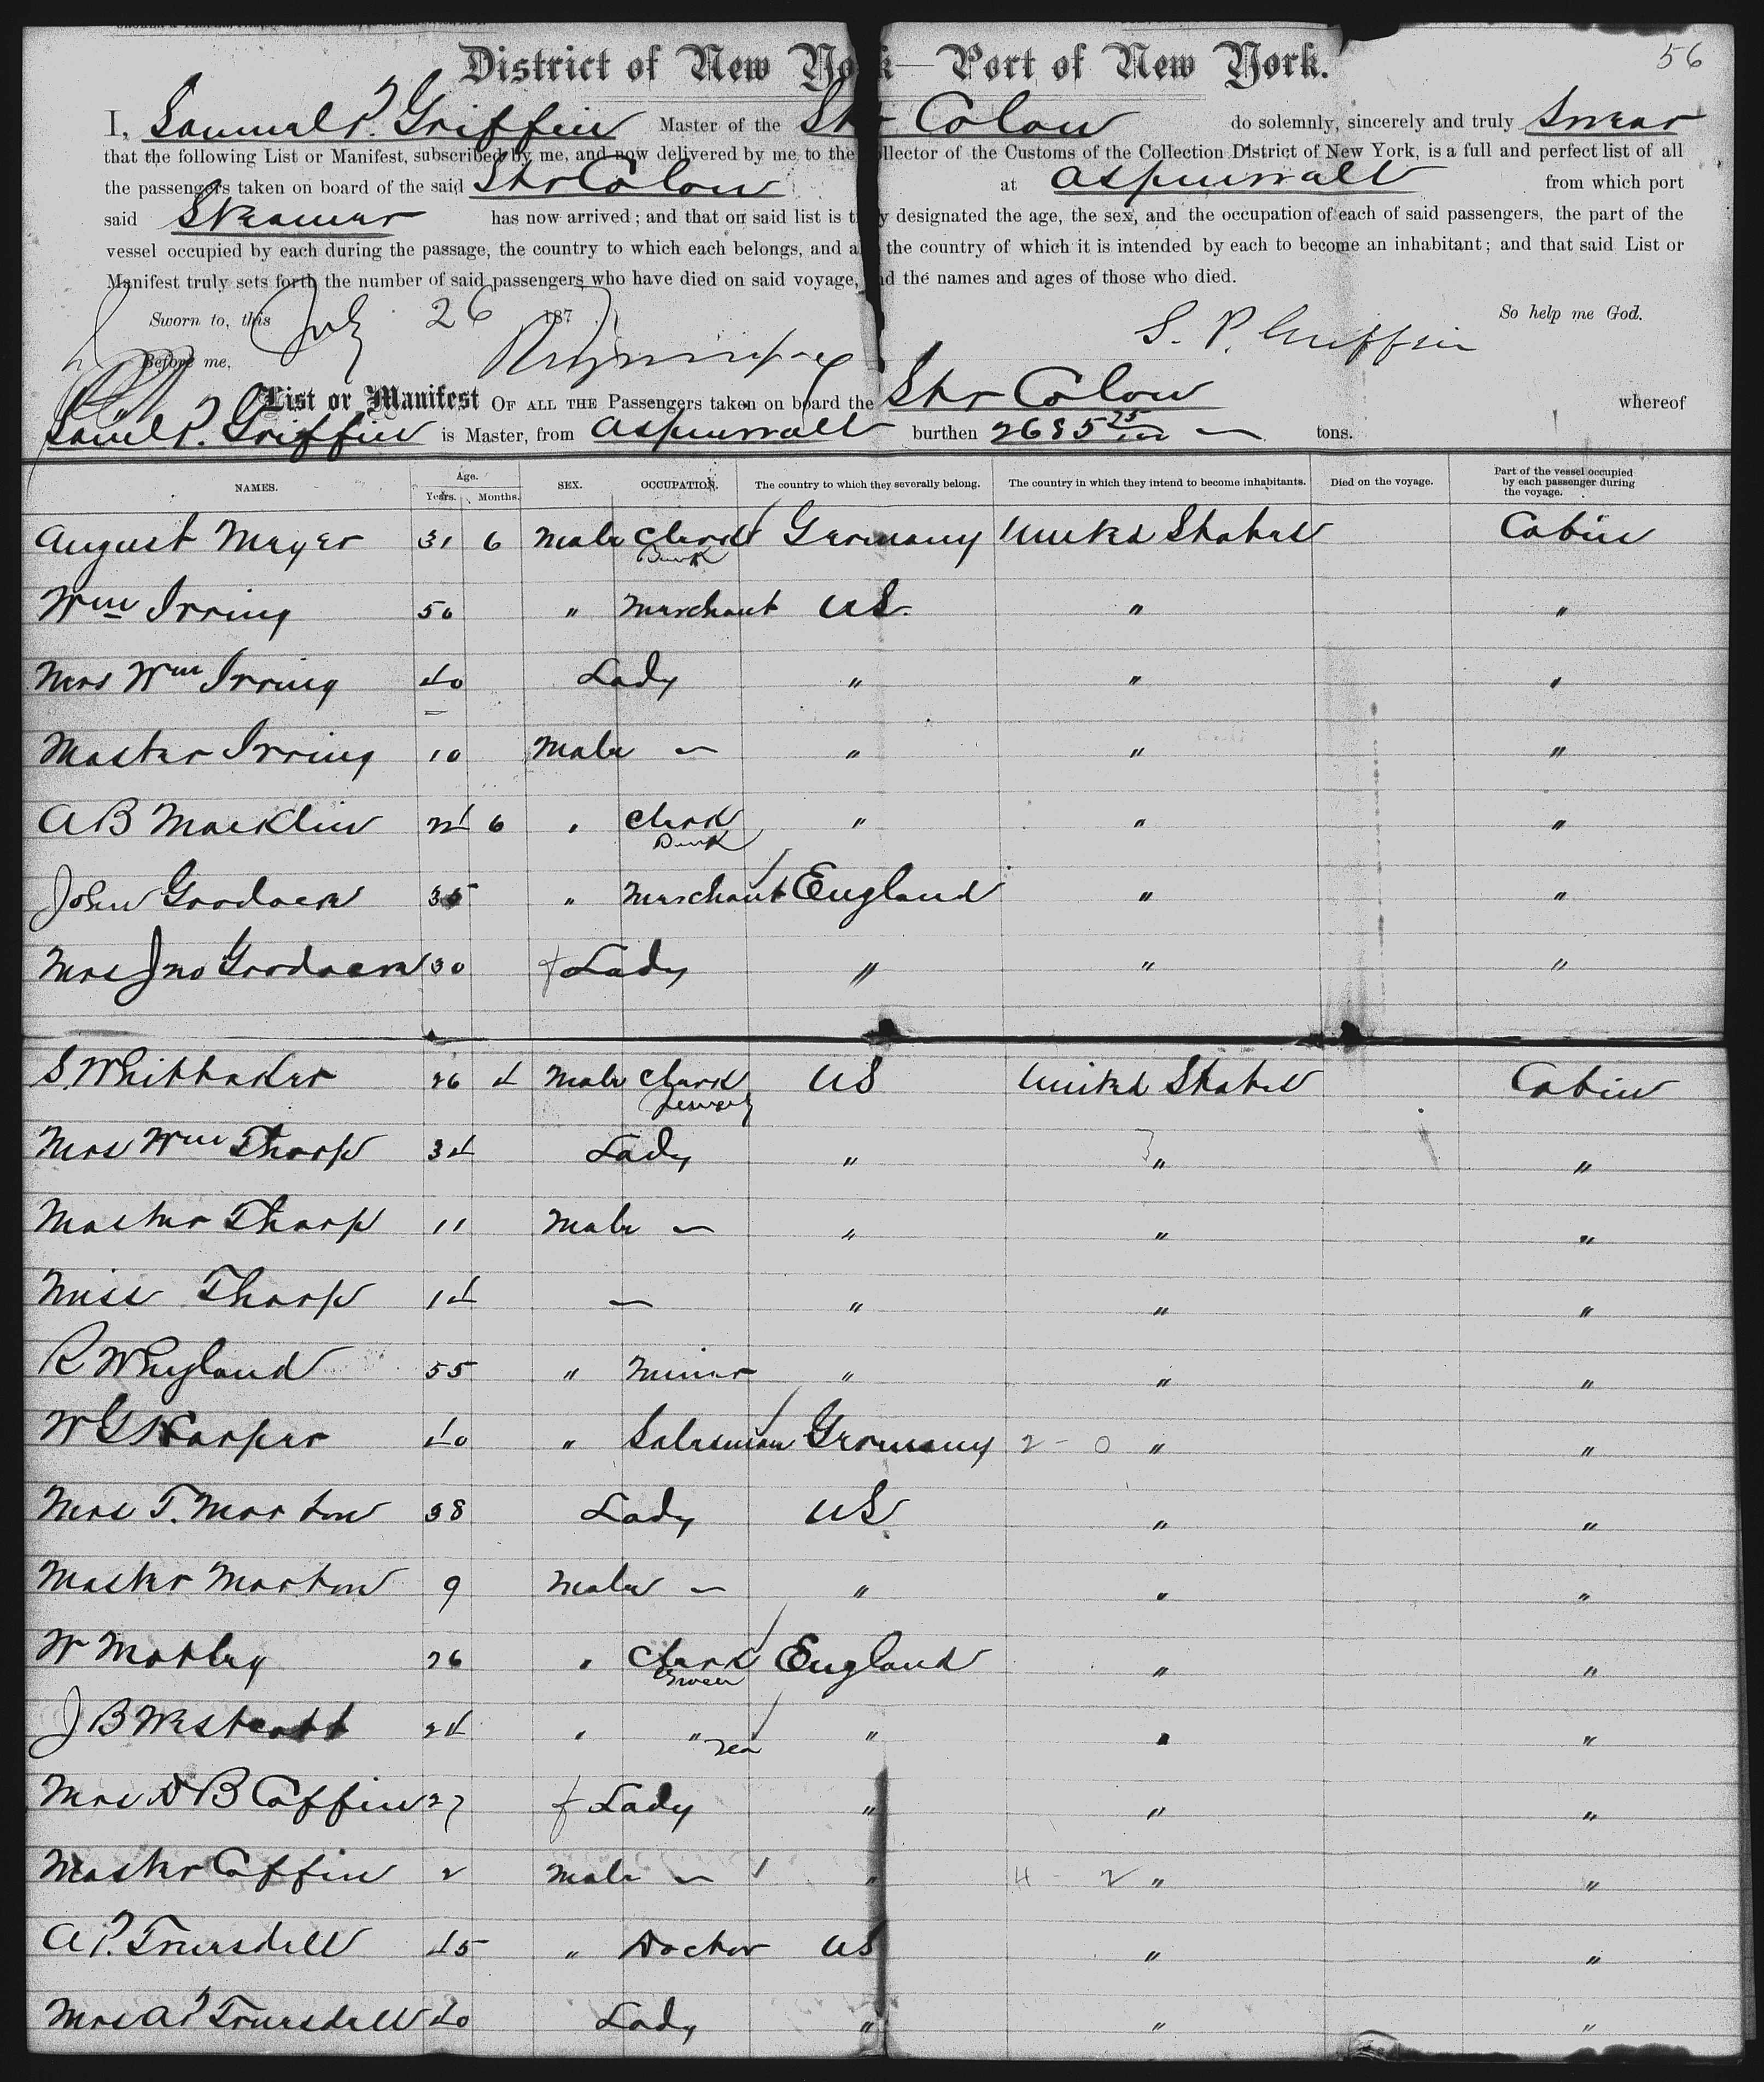 56
District of New York — Port of New York.
I, Samuel P. Griffin Master of the Str Colon do solemnly, sincerely and truly Swear
that the following List or Manifest, subscribed by me, and now delivered by me to the Collector of the Customs of the Collection District of New York, is a full and perfect list of all
the passengers taken on board of the said Str Colon at Aspinwall from which port
said Steamer has now arrived; and that on said list is truly designated the age, the sex, and the occupation of each of said passengers, the part of the
vessel occupied by each during the passage, the country to which each belongs, and also the country of which it is intended by each to become an inhabitant; and that said List or
Manifest truly sets forth the number of said passengers who have died on said voyage, and the names and ages of those who died.
Sworn to, this July 26 187 So help me God.
Before me, S. P. Griffin
List or Manifest OF ALL THE Passengers taken on board the Str Colon whereof
Saml P. Griffin is Master, from Aspinwall burthen 2685 25/100 tons.
NAMES. Age. Years. Months. SEX. OCCUPATION. The country to which they severally belong. The country in which they intend to become inhabitants. Died on the voyage. Part of the vessel occupied by each passenger during the voyage.
August Meyer 31 6 Male Clerk Germany United States Cabin
Wm Irving 50 " Merchant US. " "
Mrs Wm Irving 40 Lady " " "
Master Irving 10 Male — " " "
A B Macklin 24 6 " Clerk " " "
John Goodacre 35 " Merchant England " "
Mrs Jno Goodacre 30 f Lady " " "
S Whittaker 26 4 Male Clerk US United States Cabin
Mrs Wm Tharp 34 Lady " " "
Master Tharp 11 Male — " " "
Miss Tharp 14 — " " "
R Whyland 55 " Miner " " "
W G Harper 40 " Salesman Germany 2 - 0 " "
Mrs T. Morton 38 Lady US " "
Master Morton 9 Male — " " "
W Motley 26 " Clerk Grocer England " "
J B Westcott 24 " " Tea " " "
Mrs D B Coffin 27 f Lady " " "
Master Coffin 2 Male — " 4 - 2 " "
A P. Truesdell 45 " Doctor US " "
Mrs A P Truesdell 40 Lady " " "